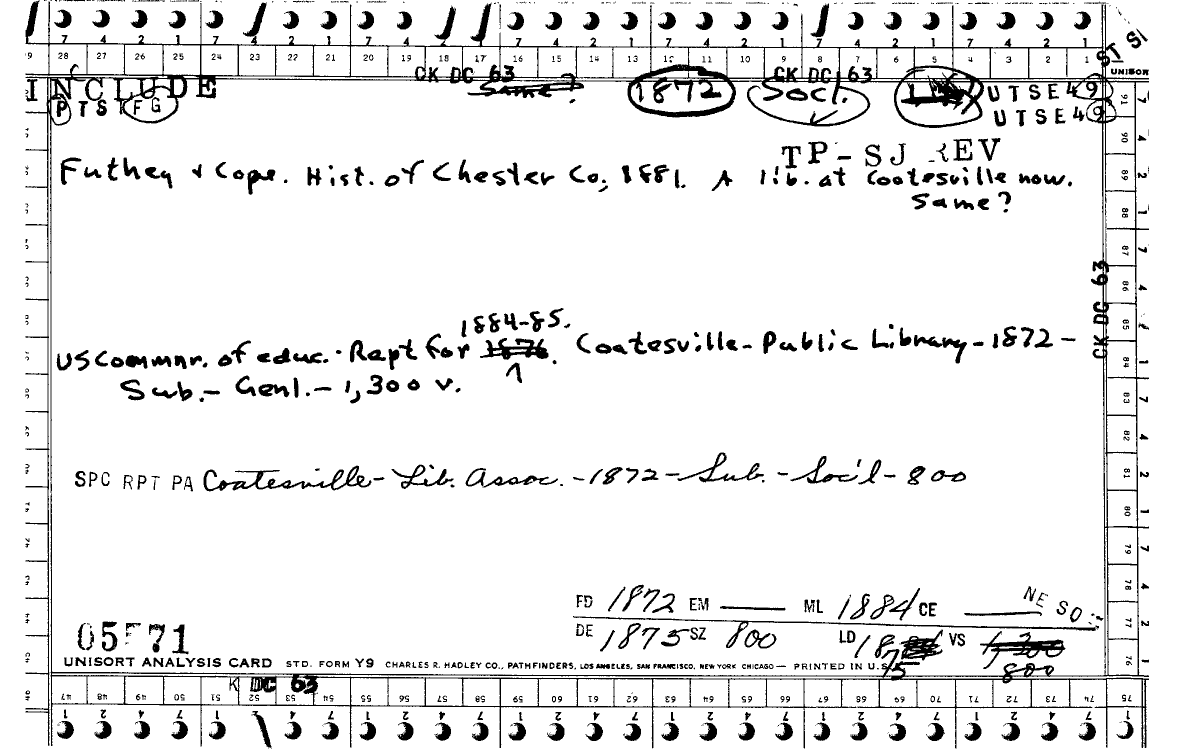 7 4 2 1 7 4 2 1 7 4 2 1 7 4 2 1 7 4 2 1 7 4 2 1 7 4 2 1
28 27 26 25 24 23 22 21 20 19 18 17 16 15 14 13 12 11 10 9 8 7 6 5 4 3 2 1
ST SI
UNISORT
CK DC 63
CK DC 63
INCLUDE
Same?
1872
Soc'l.
UTSE49
PTSTFG
UTSE49
TP-SJ REV
Futhey & Cope. Hist. of Chester Co, 1881. A lib. at Coatesville now.
Same?
CK DC 63
1884-85.
US Commnr. of educ. Rept for 1876. Coatesville - Public Library - 1872 -
Sub. - Genl. - 1,300 v.
SPC RPT PA Coatesville - Lib. Assoc. - 1872 - Sub. - Soc'l - 800
FD 1872 EM ML 1884 CE NE SO
DE 1875 SZ 800 LD 1875 VS 1,300
800
05571
UNISORT ANALYSIS CARD STD. FORM Y9 CHARLES R. HADLEY CO., PATHFINDERS, LOS ANGELES, SAN FRANCISCO, NEW YORK CHICAGO — PRINTED IN U.S.
K DC 63
47 48 49 50 51 52 53 54 55 56 57 58 59 60 61 62 63 64 65 66 67 68 69 70 71 72 73 74 75